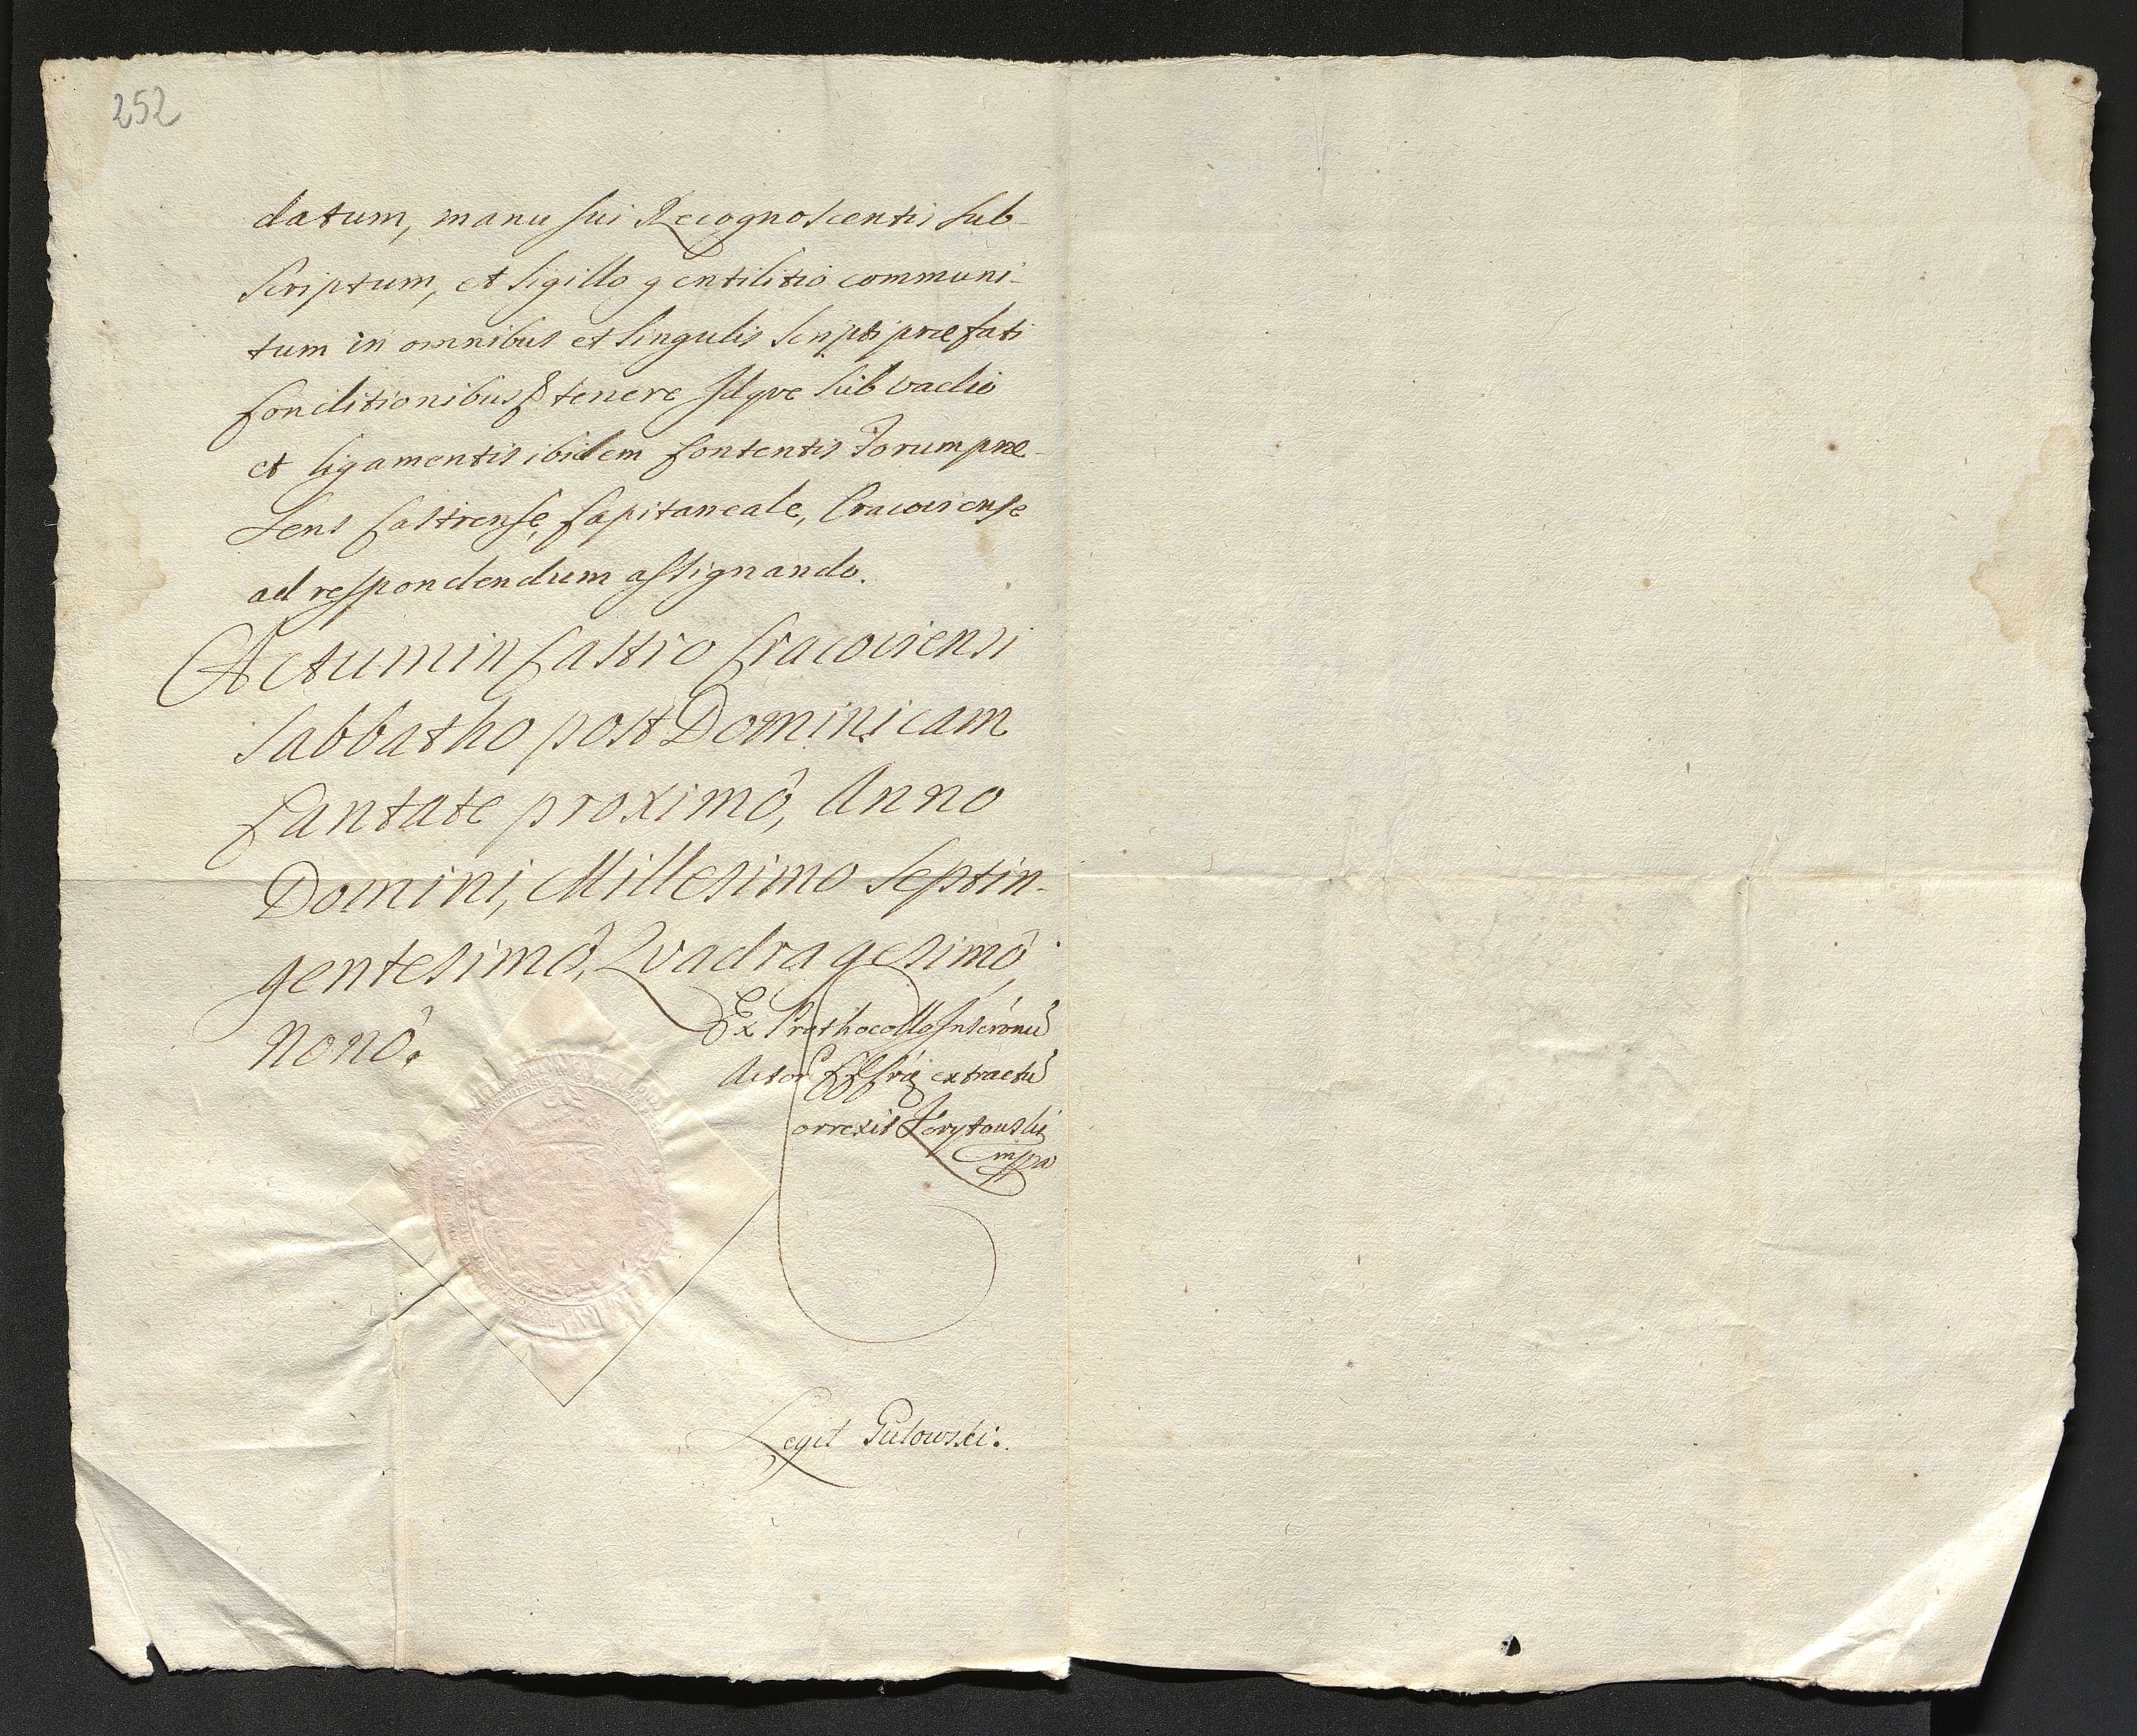 252
datum, manu sui Recognoscentis sub-
scriptum, et sigillo gentilitio communi-
tum in omnibus et singulis scripti præfati
Conditionibus tenere Idqve sub vadio
et ligamentis ibidem Contentis Forum præ-
sens Castrense, Capitaneale, Cracoviense
ad respondendum assignando.
Actum in Castro Cracoviensi
Sabbatho post Dominicam
Cantate proximô, Anno
Domini, Millesimo Septin-
gentesimô, Qvadragesimô
Nonô.
Ex Prothocollo
extractũ
orrexit
mppa
Legit Gutowski.